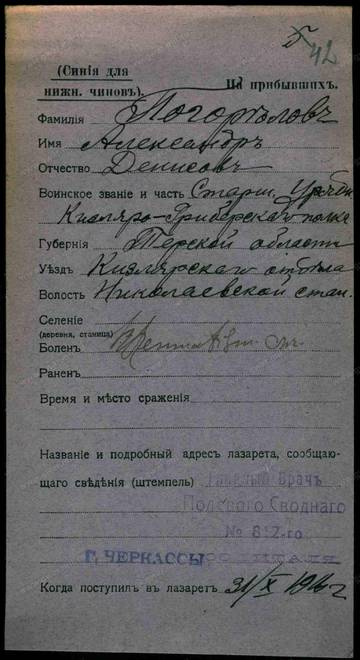 42
(Синія для
нижн. чиновъ).
На прибывшихъ.
Фамилія Погорѣловъ
Имя Александръ
Отчество Денисовъ
Воинское званіе и часть Старш. Урядн.
Кизляро-Гребенскаго полка
Губернія Терской области
Уѣздъ Кизлярскаго отдѣла
Волость Николаевской стан.
Селеніе
(деревня, станица)
Боленъ
Раненъ
Время и мѣсто сраженія
Названіе и подробный адресъ лазарета, сообщаю-
щаго свѣдѣнія (штемпель) Главный Врачъ
Полевого Своднаго
№
Г. ЧЕРКАССЫ ГОСПИТАЛЯ
Когда поступилъ въ лазаретъ 31/X 1916 г